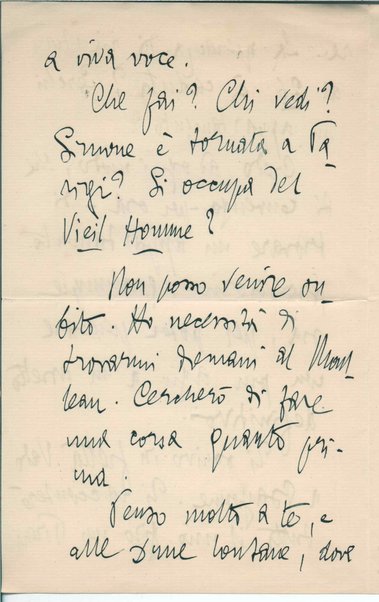 a viva voce.
Che fai? Chi vedi?
Simone è tornata a Pa-
rigi? Si occupa del
Vieil Homme?
Non posso venire su-
bito. Ho necessità di
trovarmi domani al Moul-
leau. Cercherò di fare
una corsa quanto pri-
ma.
Penso molto a te, e
alle Dune lontane, dove